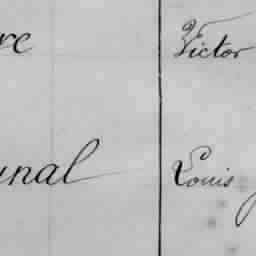 re Victor
unal Louis